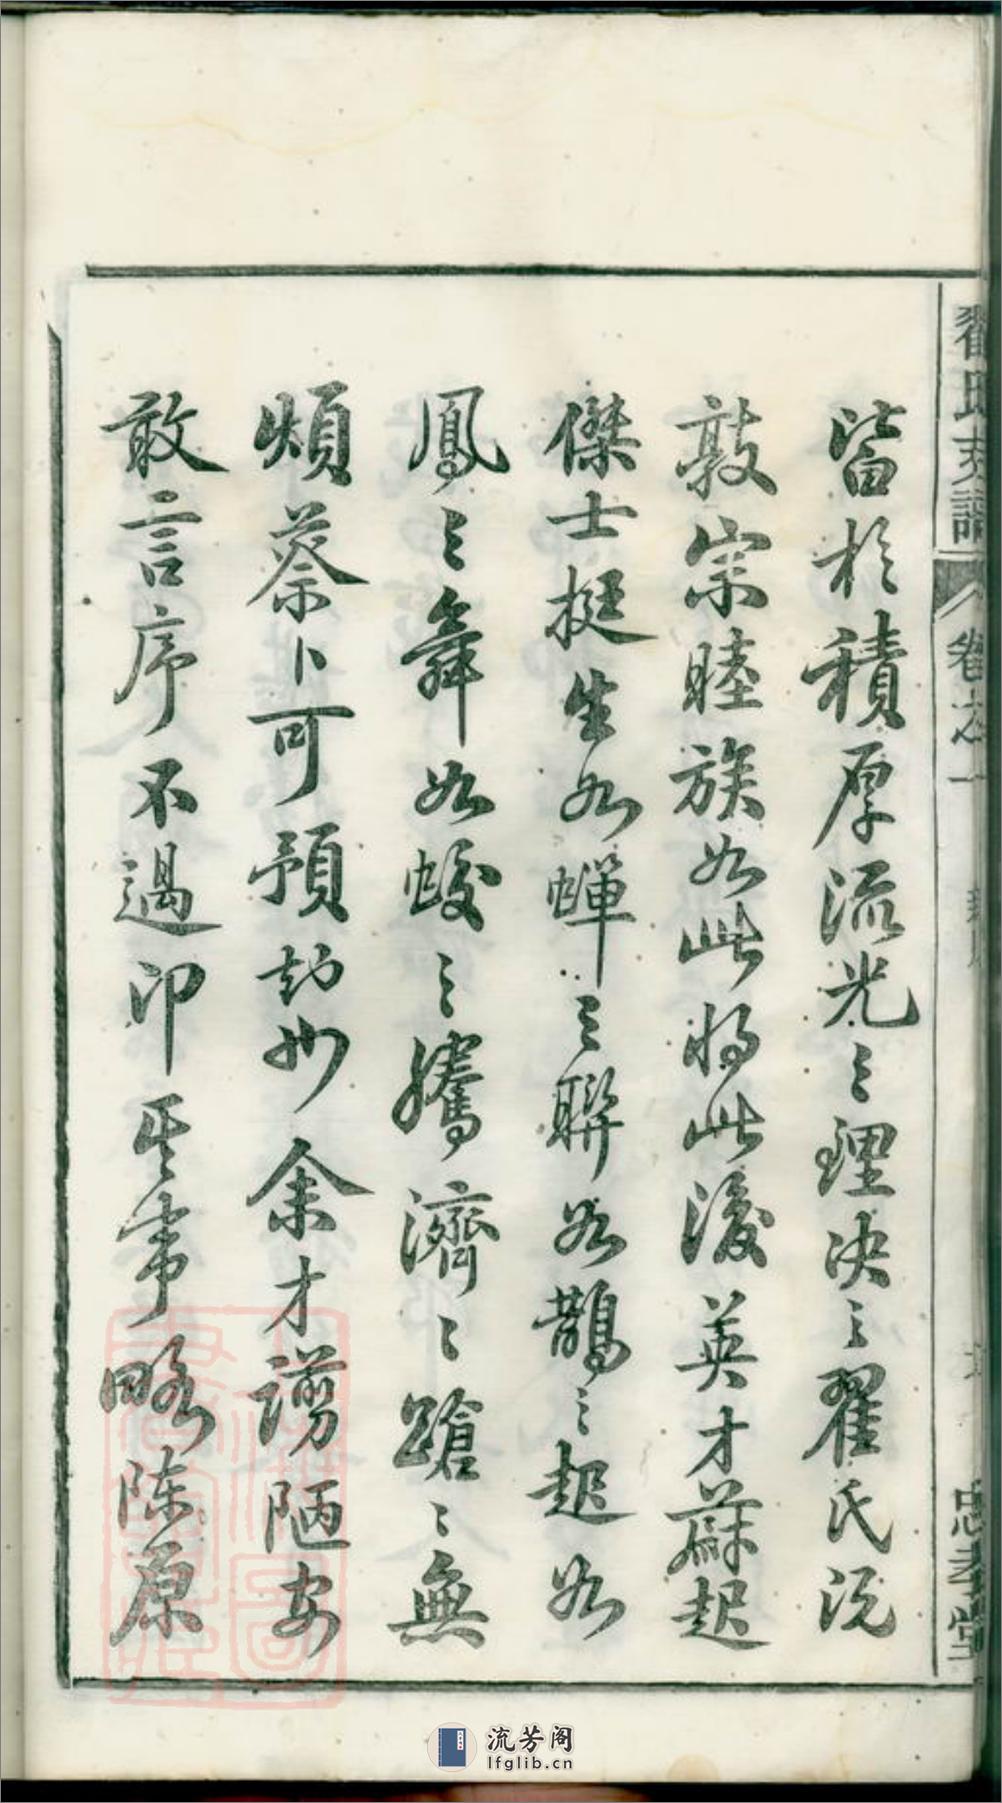 翟氏支譜 卷之一 忠孝堂
皆於積厚流光之理決之翟氏況
敦宗睦族如此將此後英才蔚起
傑士挺生如蟬之聯如鵲之起如
鳳之舞如蛟之騰濟濟蹌蹌無
煩蔡卜可預知也余才譾陋安
敢言序不過即其事略陈原
流芳阁
lfglib.cn